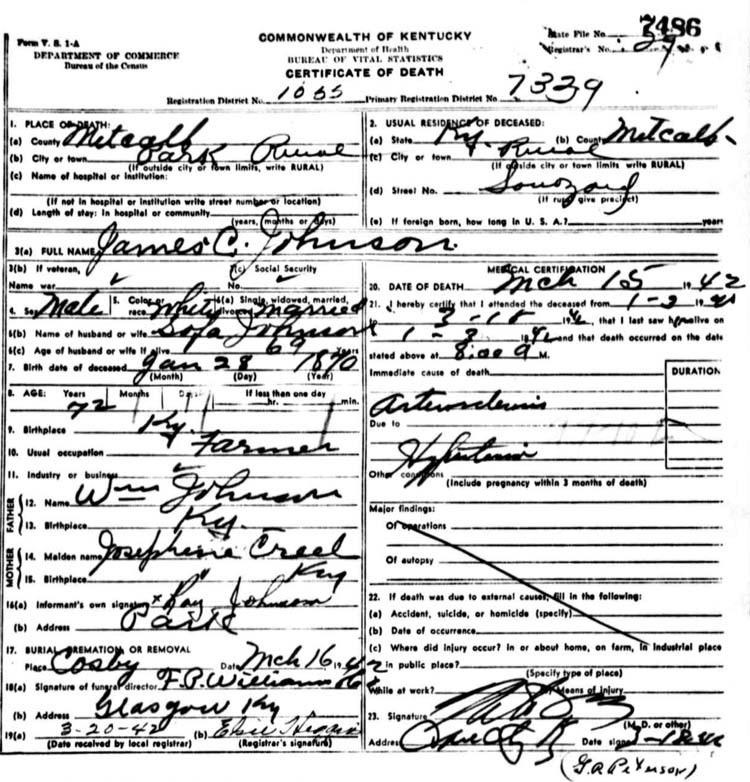 7486
Form V. S. 1-A
DEPARTMENT OF COMMERCE
Bureau of the Census
COMMONWEALTH OF KENTUCKY
Department of Health
BUREAU OF VITAL STATISTICS
CERTIFICATE OF DEATH
State File No.
Registrar's No.
Registration District No. 1055 Primary Registration District No. 7339
1. PLACE OF DEATH:
(a) County Metcalf
(b) City or town Park Rural
(If outside city or town limits, write RURAL)
(c) Name of hospital or institution:
(If not in hospital or institution write street number or location)
(d) Length of stay: In hospital or community
(years, months or days)
2. USUAL RESIDENCE OF DECEASED:
(a) State Ky. (b) County Metcalf
(c) City or town Rural
(If outside city or town limits, write RURAL)
(d) Street No.
(If rural give precinct)
(e) If foreign born, how long in U. S. A.? years
3(a) FULL NAME James C. Johnson
3(b) If veteran,
Name war
(c) Social Security
No.
4. Sex Male 5. Color or race White 6(a) Single, widowed, married, divorced Married
6(b) Name of husband or wife Johnson
6(c) Age of husband or wife if alive 69
7. Birth date of deceased Jan 28 1870
(Month) (Day) (Year)
8. AGE: Years Months Days If less than one day
72 hr. min.
9. Birthplace Ky.
10. Usual occupation Farmer
11. Industry or business
FATHER
12. Name Wm Johnson
13. Birthplace Ky.
MOTHER
14. Maiden name Josephine Creel
15. Birthplace Ky
16(a) Informant's own signature x Ray Johnson
(b) Address Park
17. BURIAL CREMATION OR REMOVAL
Place Cosby Date Mch 16 1942
18(a) Signature of funeral director F. P. Williams
(b) Address Glasgow Ky
19(a) 3-20-42 (b) Elsie
(Date received by local registrar) (Registrar's signature)
MEDICAL CERTIFICATION
20. DATE OF DEATH Mch 15 1942
21. I hereby certify that I attended the deceased from 1-2
that I last saw h alive on
1-3 and that death occurred on the date
stated above at M.
Immediate cause of death DURATION
Arteriosclerosis
Due to
Hypertension
Other conditions
(Include pregnancy within 3 months of death)
Major findings:
Of operations
Of autopsy
22. If death was due to external causes, fill in the following:
(a) Accident, suicide, or homicide (specify)
(b) Date of occurrence
(c) Where did injury occur? In or about home, on farm, in industrial place
in public place?
(Specify type of place)
While at work? Means of injury
23. Signature
(M. D. or other)
Address Date signed